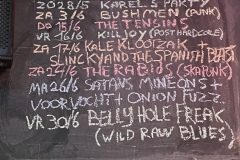 2028/5 KAREL'S PARTY
ZA 3/6 BUSHMEN (PUNK)
DO 15/6 THE TENSINS
VR 16/6 KILLJOY (POSTHARDCORE)
ZA 17/6 KALE KLOOTZAK +
SLINCKY AND THE SPANISH BEAST
ZA 24/6 THE RABIDS (SKAPUNK)
MA 26/6 SATANS MINEONS +
VOORVOCHT + ONION FUZZ.
VR 30/6 BELLY HOLE FREAK
(WILD RAW BLUES)